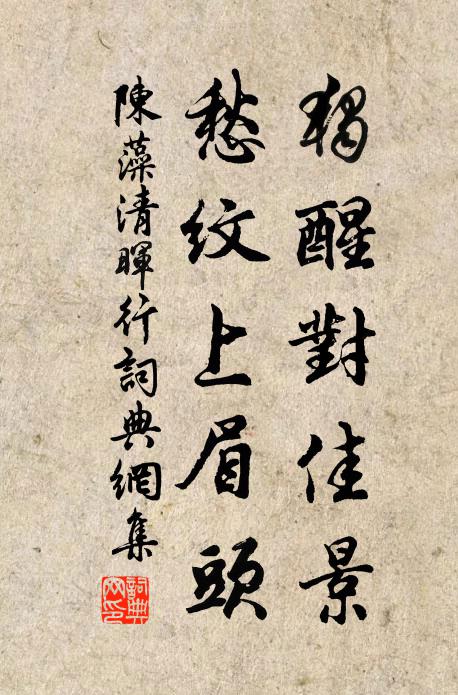 獨醒對佳景
愁紋上眉頭
陳藻清暉行詞典網集
詞典網印